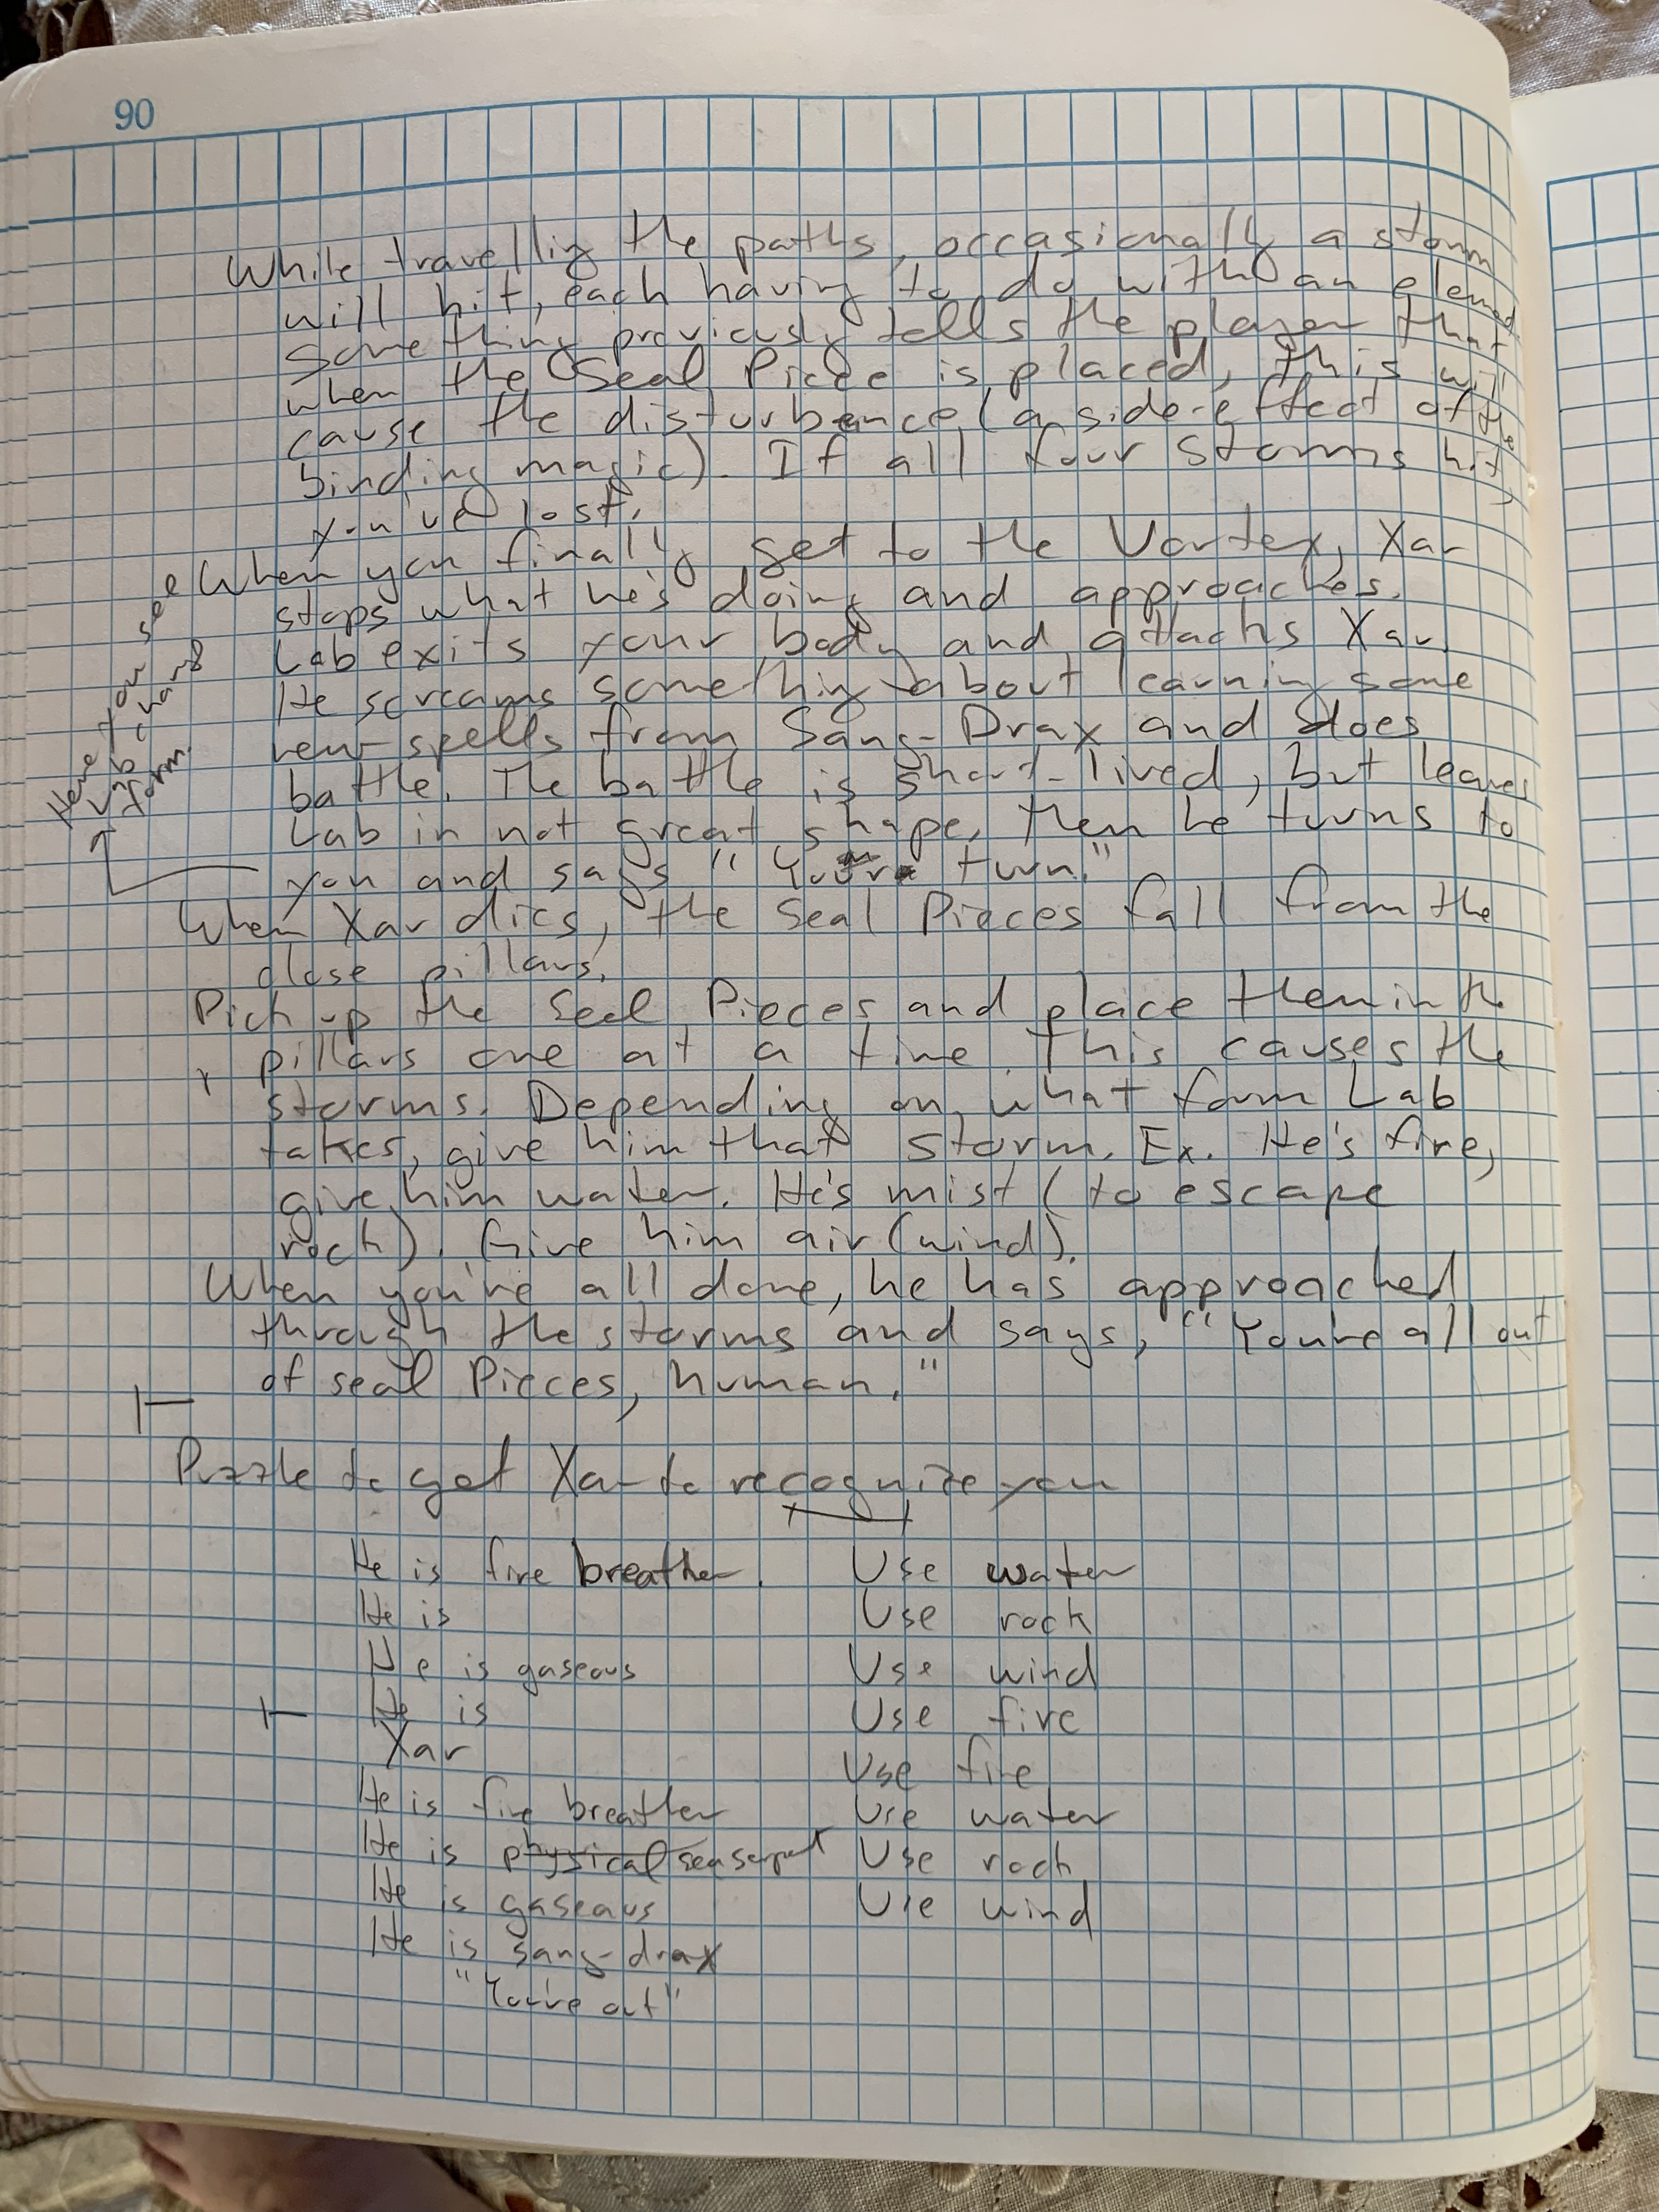 90
While travelling the paths, occasionally a storm
will hit, each having to do with an element
Something previously tells the player that
when the Seal Piece is placed, this will
cause the disturbance (a side-effect of the
binding magic). If all four storms hit,
you've lost.
When you finally get to the Vortex, Xar
stops what he's doing and approaches.
Lab exits your body and attacks Xar.
He screams something about learning some
new spells from Sang-Drax and does
battle. The battle is short-lived, but leaves
Lab in not great shape, then he turns to
you and says "Your turn."
Have you see
Lab change
form.
When Xar dies, the Seal Pieces fall from the
close pillars.
Pick up the Seal Pieces and place them in the
pillars one at a time. This causes the
storms. Depending on what form Lab
takes, give him that storm. Ex. He's fire,
give him water. He's mist (to escape
rock). Give him air (wind).
When you're all done, he has approached
through the storms and says, "You're all out
of seal Pieces, human."
Puzzle to get Xar to recognize you
He is fire breather. Use water
He is Use rock
He is gaseous Use wind
He is Use fire
Xar Use fire
He is fire breather Use water
He is physical sea serpent Use rock
He is gaseous Use wind
He is sang-drax
"You're out"